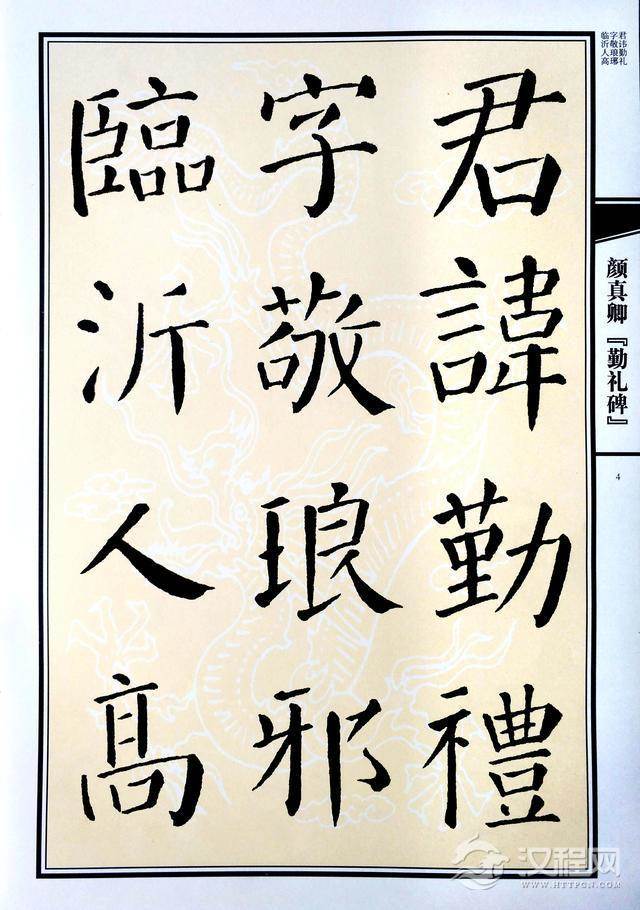 君諱勤禮
字敬琅邪
臨沂人高
君讳勤礼
字敬琅琊
临沂人高
颜真卿『勤礼碑』
4
汉程网
WWW.HTTPCN.COM